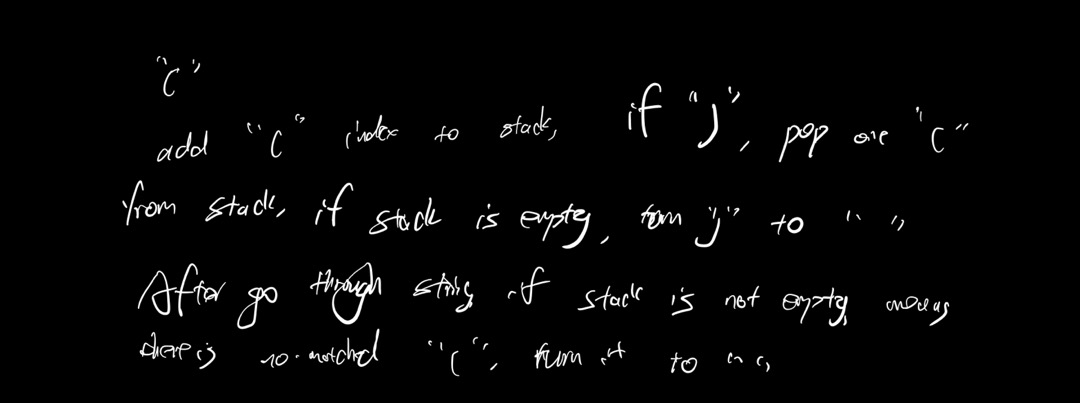 "("
add "(" index to stack, if ")", pop one "("
from stack, if stack is empty, turn ")" to " "
After go through string, if stack is not empty, means
there is no-matched "(", turn it to ""